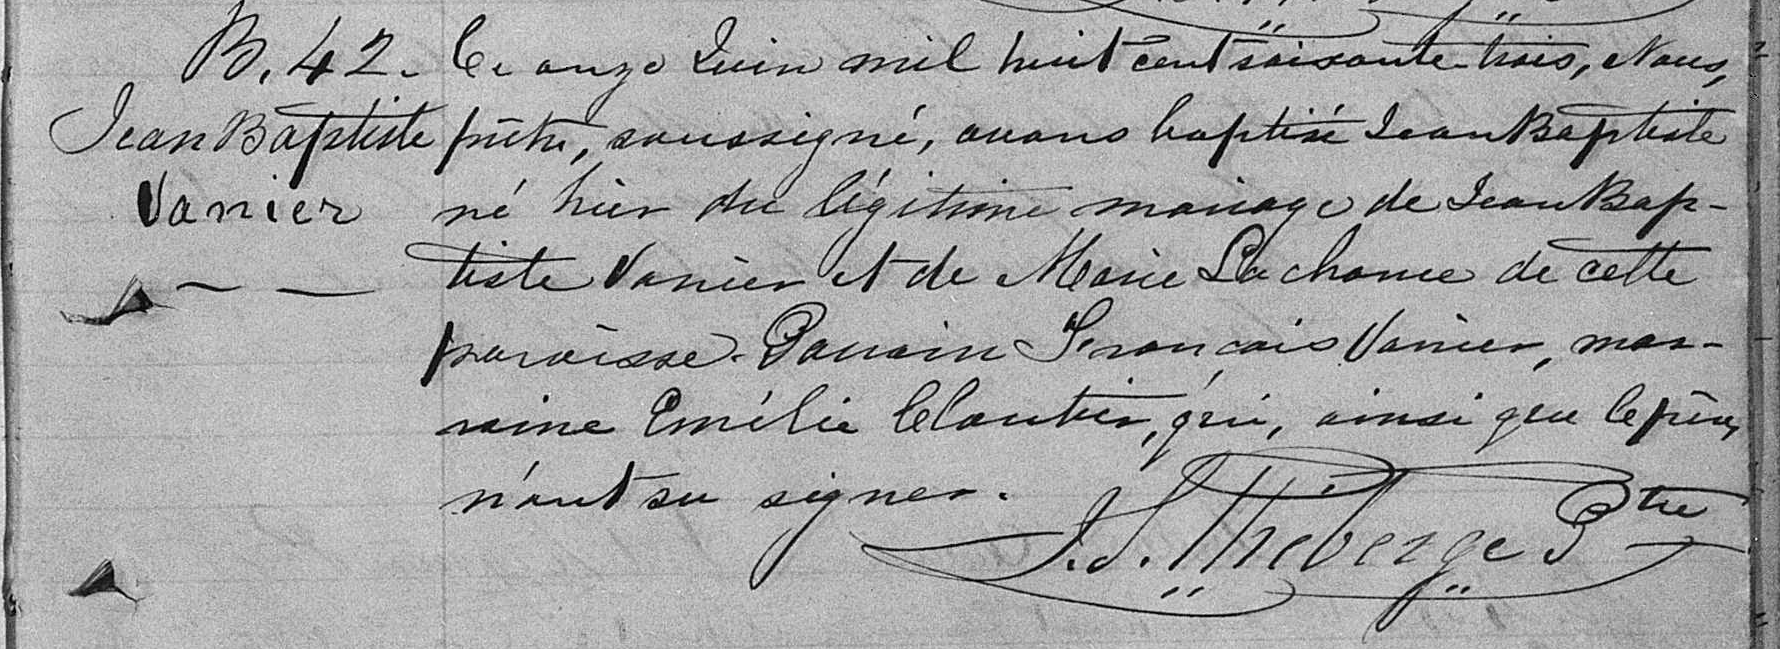 B. 42.
Jean Baptiste
Vanier
Le onze Juin mil huit cent soixante-trois, Nous,
prêtre, soussigné, avons baptisé Jean Baptiste
né hier du légitime mariage de Jean Bap-
tiste Vanier et de Marie Lachance de cette
paroisse. Parrain François Vanier, mar-
raine Emélie Cloutier, qui, ainsi que le père,
n'ont su signer.
J. S. Theberge Ptre